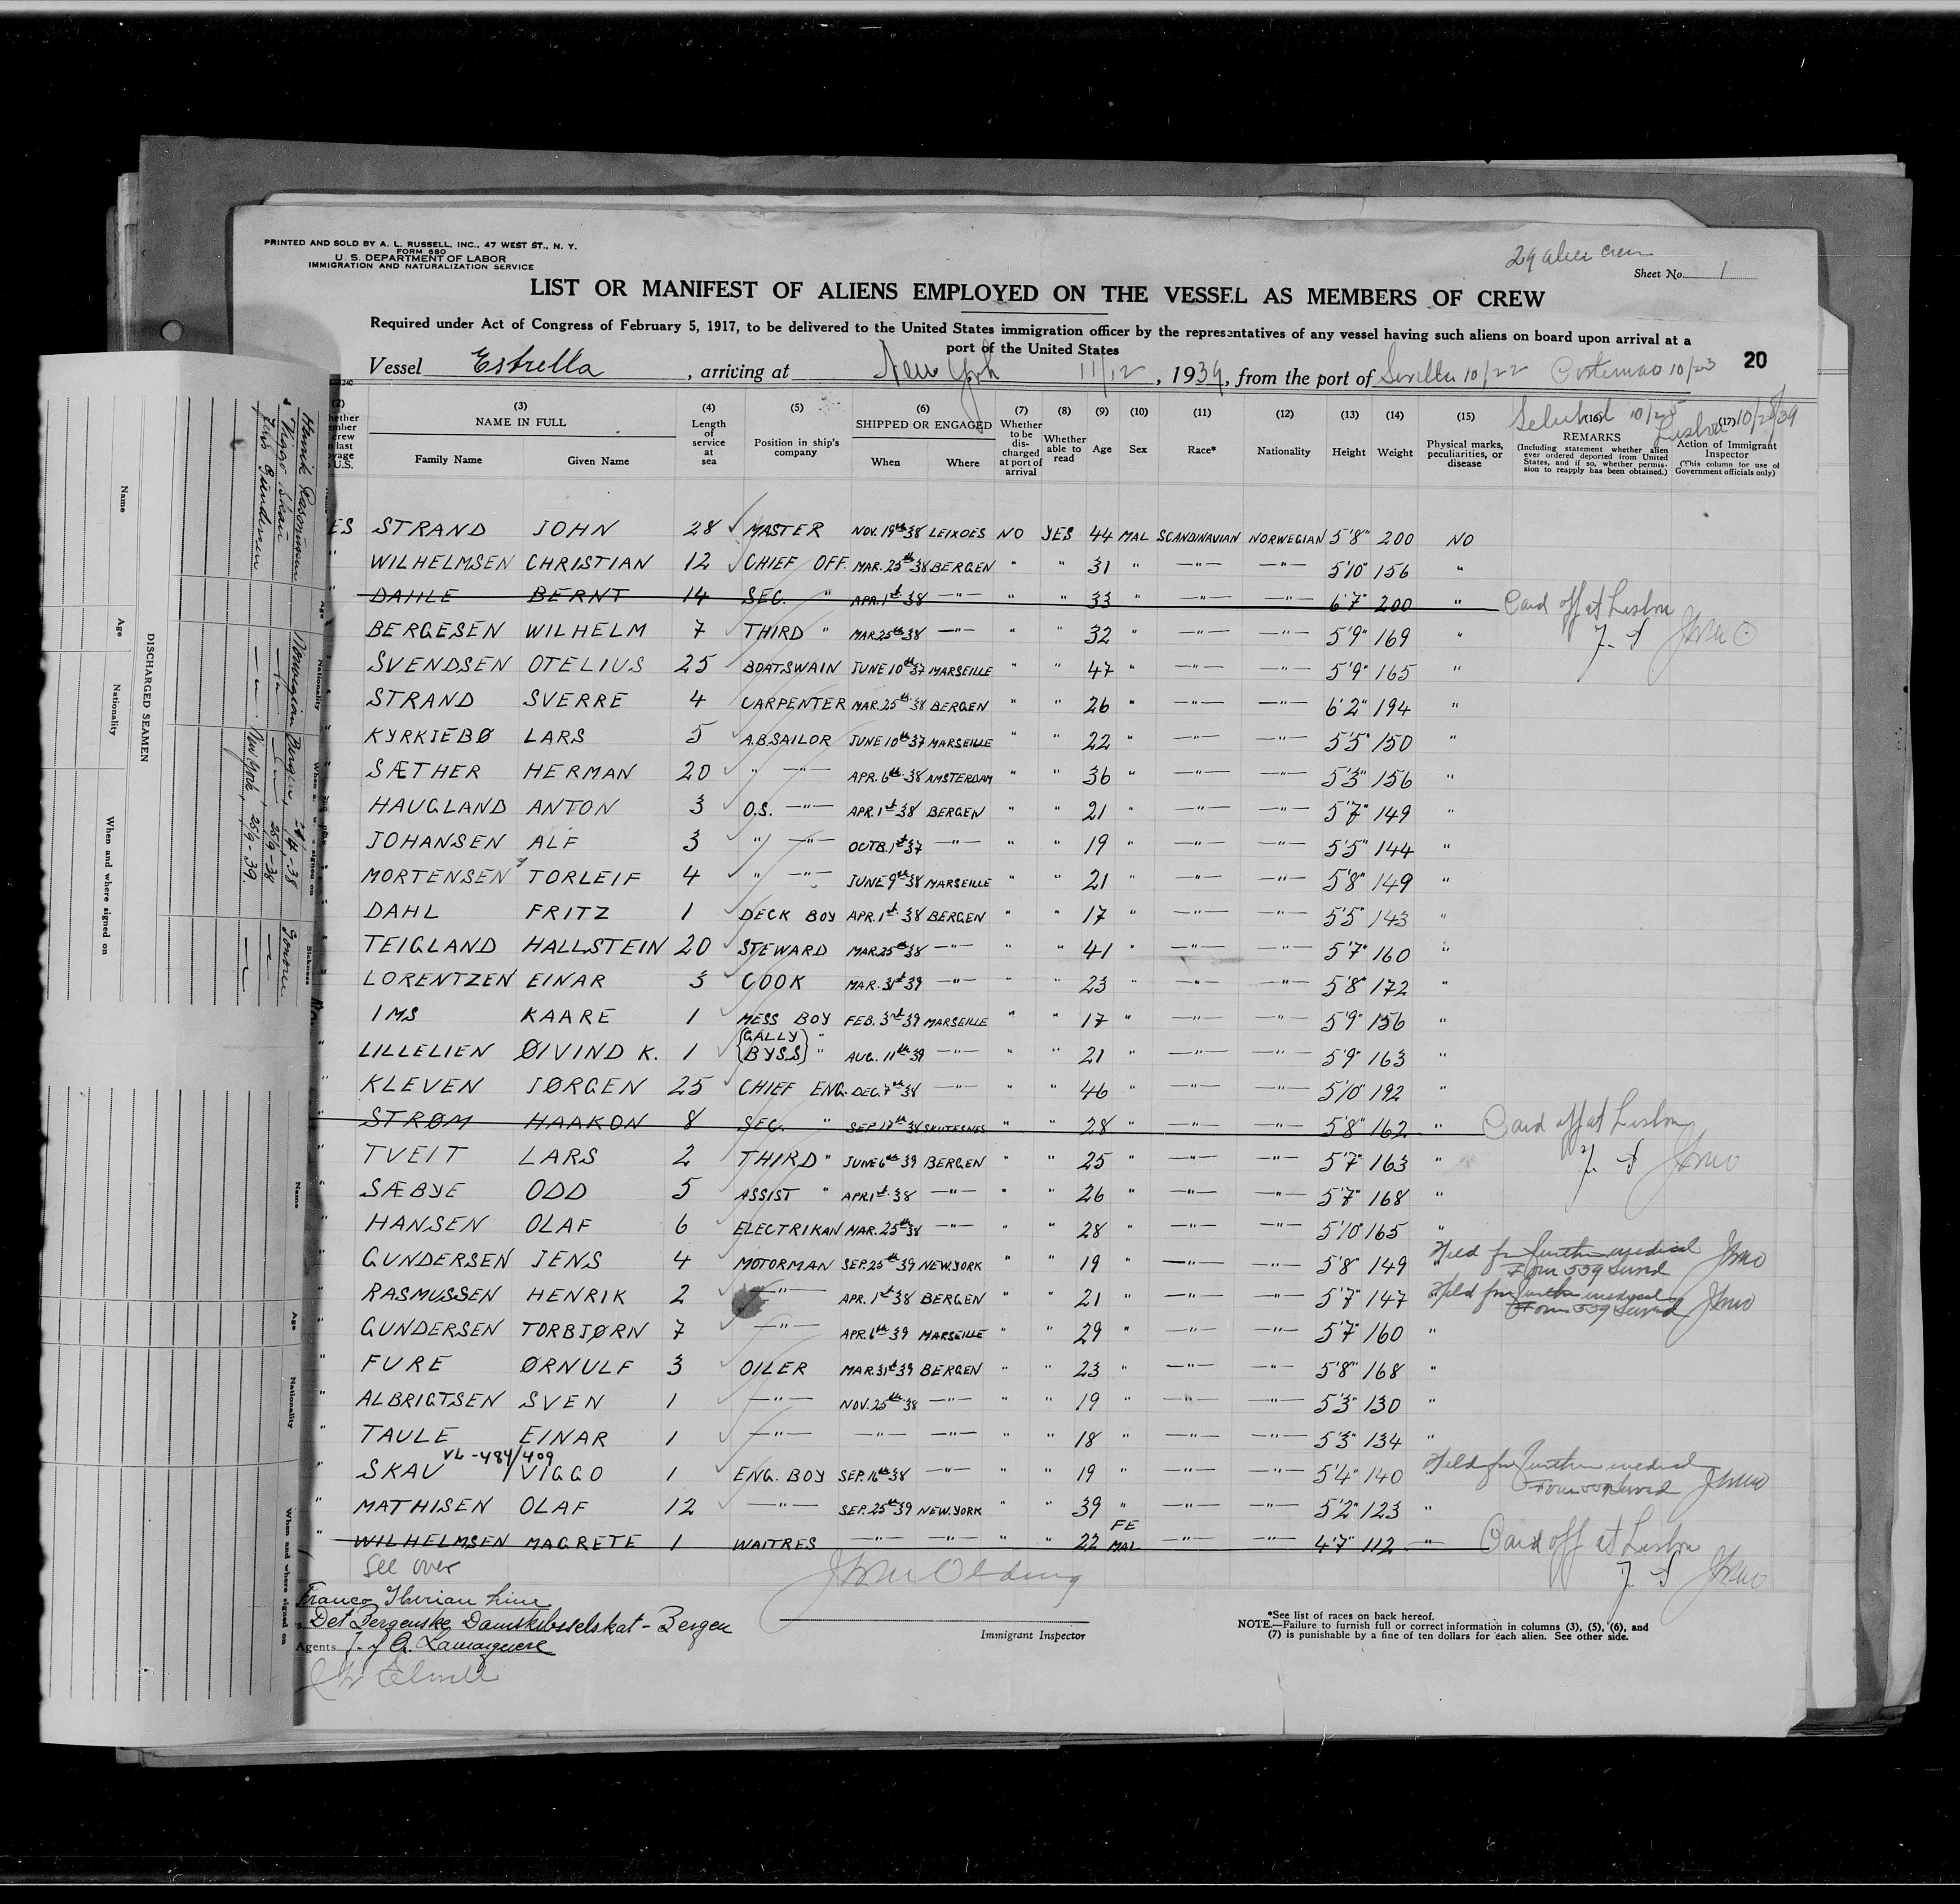 PRINTED AND SOLD BY A. L. RUSSELL, INC., 47 WEST ST., N. Y.
FORM 680
U. S. DEPARTMENT OF LABOR
IMMIGRATION AND NATURALIZATION SERVICE
29 alien crew
Sheet No. 1
LIST OR MANIFEST OF ALIENS EMPLOYED ON THE VESSEL AS MEMBERS OF CREW
Required under Act of Congress of February 5, 1917, to be delivered to the United States immigration officer by the representatives of any vessel having such aliens on board upon arrival at a
port of the United States
20
Vessel Estrella, arriving at New York 11/12, 1939, from the port of Sevilla 10/22 10/23
10/25 Lisbon 10/28/39
(2) (3) (4) (5) (6) (7) (8) (9) (10) (11) (12) (13) (14) (15) (16) (17)
NAME IN FULL Family Name Given Name Length of service at sea Position in ship's company SHIPPED OR ENGAGED When Where Whether to be discharged at port of arrival Whether able to read Age Sex Race* Nationality Height Weight Physical marks, peculiarities, or disease REMARKS (Including statement whether alien ever ordered deported from United States, and if so, whether permission to reapply has been obtained.) Action of Immigrant Inspector (This column for use of Government officials only)
ES STRAND JOHN 28 ✓ MASTER NOV. 19th 38 LEIXOES NO YES 44 MAL SCANDINAVIAN NORWEGIAN 5'8" 200 NO
" WILHELMSEN CHRISTIAN 12 ✓ CHIEF OFF. MAR. 25th 38 BERGEN " " 31 " —"— —"— 5'10" 156 "
" DAHLE BERNT 14 SEC. " APR. 1st 38 —"— " " 33 " —"— —"— 6'7" 200 " Paid off at Lisbon
" BERGESEN WILHELM 7 ✓ THIRD " MAR. 25th 38 —"— " " 32 " —"— —"— 5'9" 169 "
" SVENDSEN OTELIUS 25 ✓ BOATSWAIN JUNE 10th 37 MARSEILLE " " 47 " —"— —"— 5'9" 165 "
" STRAND SVERRE 4 ✓ CARPENTER MAR. 25th 38 BERGEN " " 26 " —"— —"— 6'2" 194 "
" KYRKIEBØ LARS 5 ✓ A.B SAILOR JUNE 10th 37 MARSEILLE " " 22 " —"— —"— 5'5" 150 "
" SÆTHER HERMAN 20 ✓ " —"— APR. 6th 38 AMSTERDAM " " 36 " —"— —"— 5'3" 156 "
" HAUGLAND ANTON 3 ✓ O.S. —"— APR. 1st 38 BERGEN " " 21 " —"— —"— 5'7" 149 "
" JOHANSEN ALF 3 ✓ " —"— OCTB. 1st 37 —"— " " 19 " —"— —"— 5'5" 144 "
" MORTENSEN TORLEIF 4 ✓ " —"— JUNE 9th 38 MARSEILLE " " 21 " —"— —"— 5'8" 149 "
" DAHL FRITZ 1 ✓ DECK BOY APR. 1st 38 BERGEN " " 17 " —"— —"— 5'5" 143 "
" TEIGLAND HALLSTEIN 20 ✓ STEWARD MAR. 25th 38 —"— " " 41 " —"— —"— 5'7" 160 "
" LORENTZEN EINAR 3 ✓ COOK MAR. 31st 39 —"— " " 23 " —"— —"— 5'8" 172 "
" IMS KAARE 1 ✓ MESS BOY FEB. 3rd 39 MARSEILLE " " 17 " —"— —"— 5'9" 156 "
" LILLELIEN ØIVIND K. 1 ✓ {GALLY BYSS} " AUG. 11th 39 —"— " " 21 " —"— —"— 5'9" 163 "
" KLEVEN JØRGEN 25 ✓ CHIEF ENG. DEC. 7th 38 —"— " " 46 " —"— —"— 5'10" 192 "
" STRØM HAAKON 8 SEC. " SEP. 17th 38 SKUTESNES " " 28 " —"— —"— 5'8" 162 " Paid off at Lisbon
" TVEIT LARS 2 ✓ THIRD " JUNE 6th 39 BERGEN " " 25 " —"— —"— 5'7" 163 "
" SÆBYE ODD 5 ✓ ASSIST " APR. 1st 38 —"— " " 26 " —"— —"— 5'7" 168 "
" HANSEN OLAF 6 ✓ ELECTRIKAN MAR. 25th 38 —"— " " 28 " —"— —"— 5'10 165 "
" GUNDERSEN JENS 4 ✓ MOTORMAN SEP. 25th 39 NEW.YORK " " 19 " —"— —"— 5'8" 149 " Held for further medical Form 559 served
" RASMUSSEN HENRIK 2 —"— APR. 1st 38 BERGEN " " 21 " —"— —"— 5'7" 147 Held for further medical Form 559 served
" GUNDERSEN TORBJØRN 7 ✓ —"— APR. 6th 39 MARSEILLE " " 29 " —"— —"— 5'7" 160 "
" FURE ØRNULF 3 ✓ OILER MAR. 31st 39 BERGEN " " 23 " —"— —"— 5'8" 168 "
" ALBRIGTSEN SVEN 1 ✓ —"— NOV. 25th 38 —"— " " 19 " —"— —"— 5'3" 130 "
" TAULE EINAR 1 ✓ —"— —"— —"— " " 18 " —"— —"— 5'3" 134 "
VL-484/409
" SKAU VIGGO 1 ✓ ENG. BOY SEP. 16th 38 —"— " " 19 " —"— —"— 5'4" 140 " Held for further medical Form 559 served
" MATHISEN OLAF 12 ✓ —"— SEP. 25th 39 NEW.YORK " " 39 " —"— —"— 5'2" 123 "
" WILHELMSEN MAGRETE 1 WAITRES —"— —"— " " 22 FE MAL —"— —"— 4'7" 112 —"— Paid off at Lisbon
See over
Franco Iberian Line
Det Bergenske Dampskibsselskat - Bergen
Agents
Immigrant Inspector
*See list of races on back hereof.
NOTE.—Failure to furnish full or correct information in columns (3), (5), (6), and
(7) is punishable by a fine of ten dollars for each alien. See other side.
DISCHARGED SEAMEN
Name Age Nationality When and where signed on Sickness
Henrik Rasmussen Norwegian Bergen
Viggo Skau —"— 25/9-38
Jens Gundersen —"— New York, 25/9-39.
Name Age Nationality When and where signed on